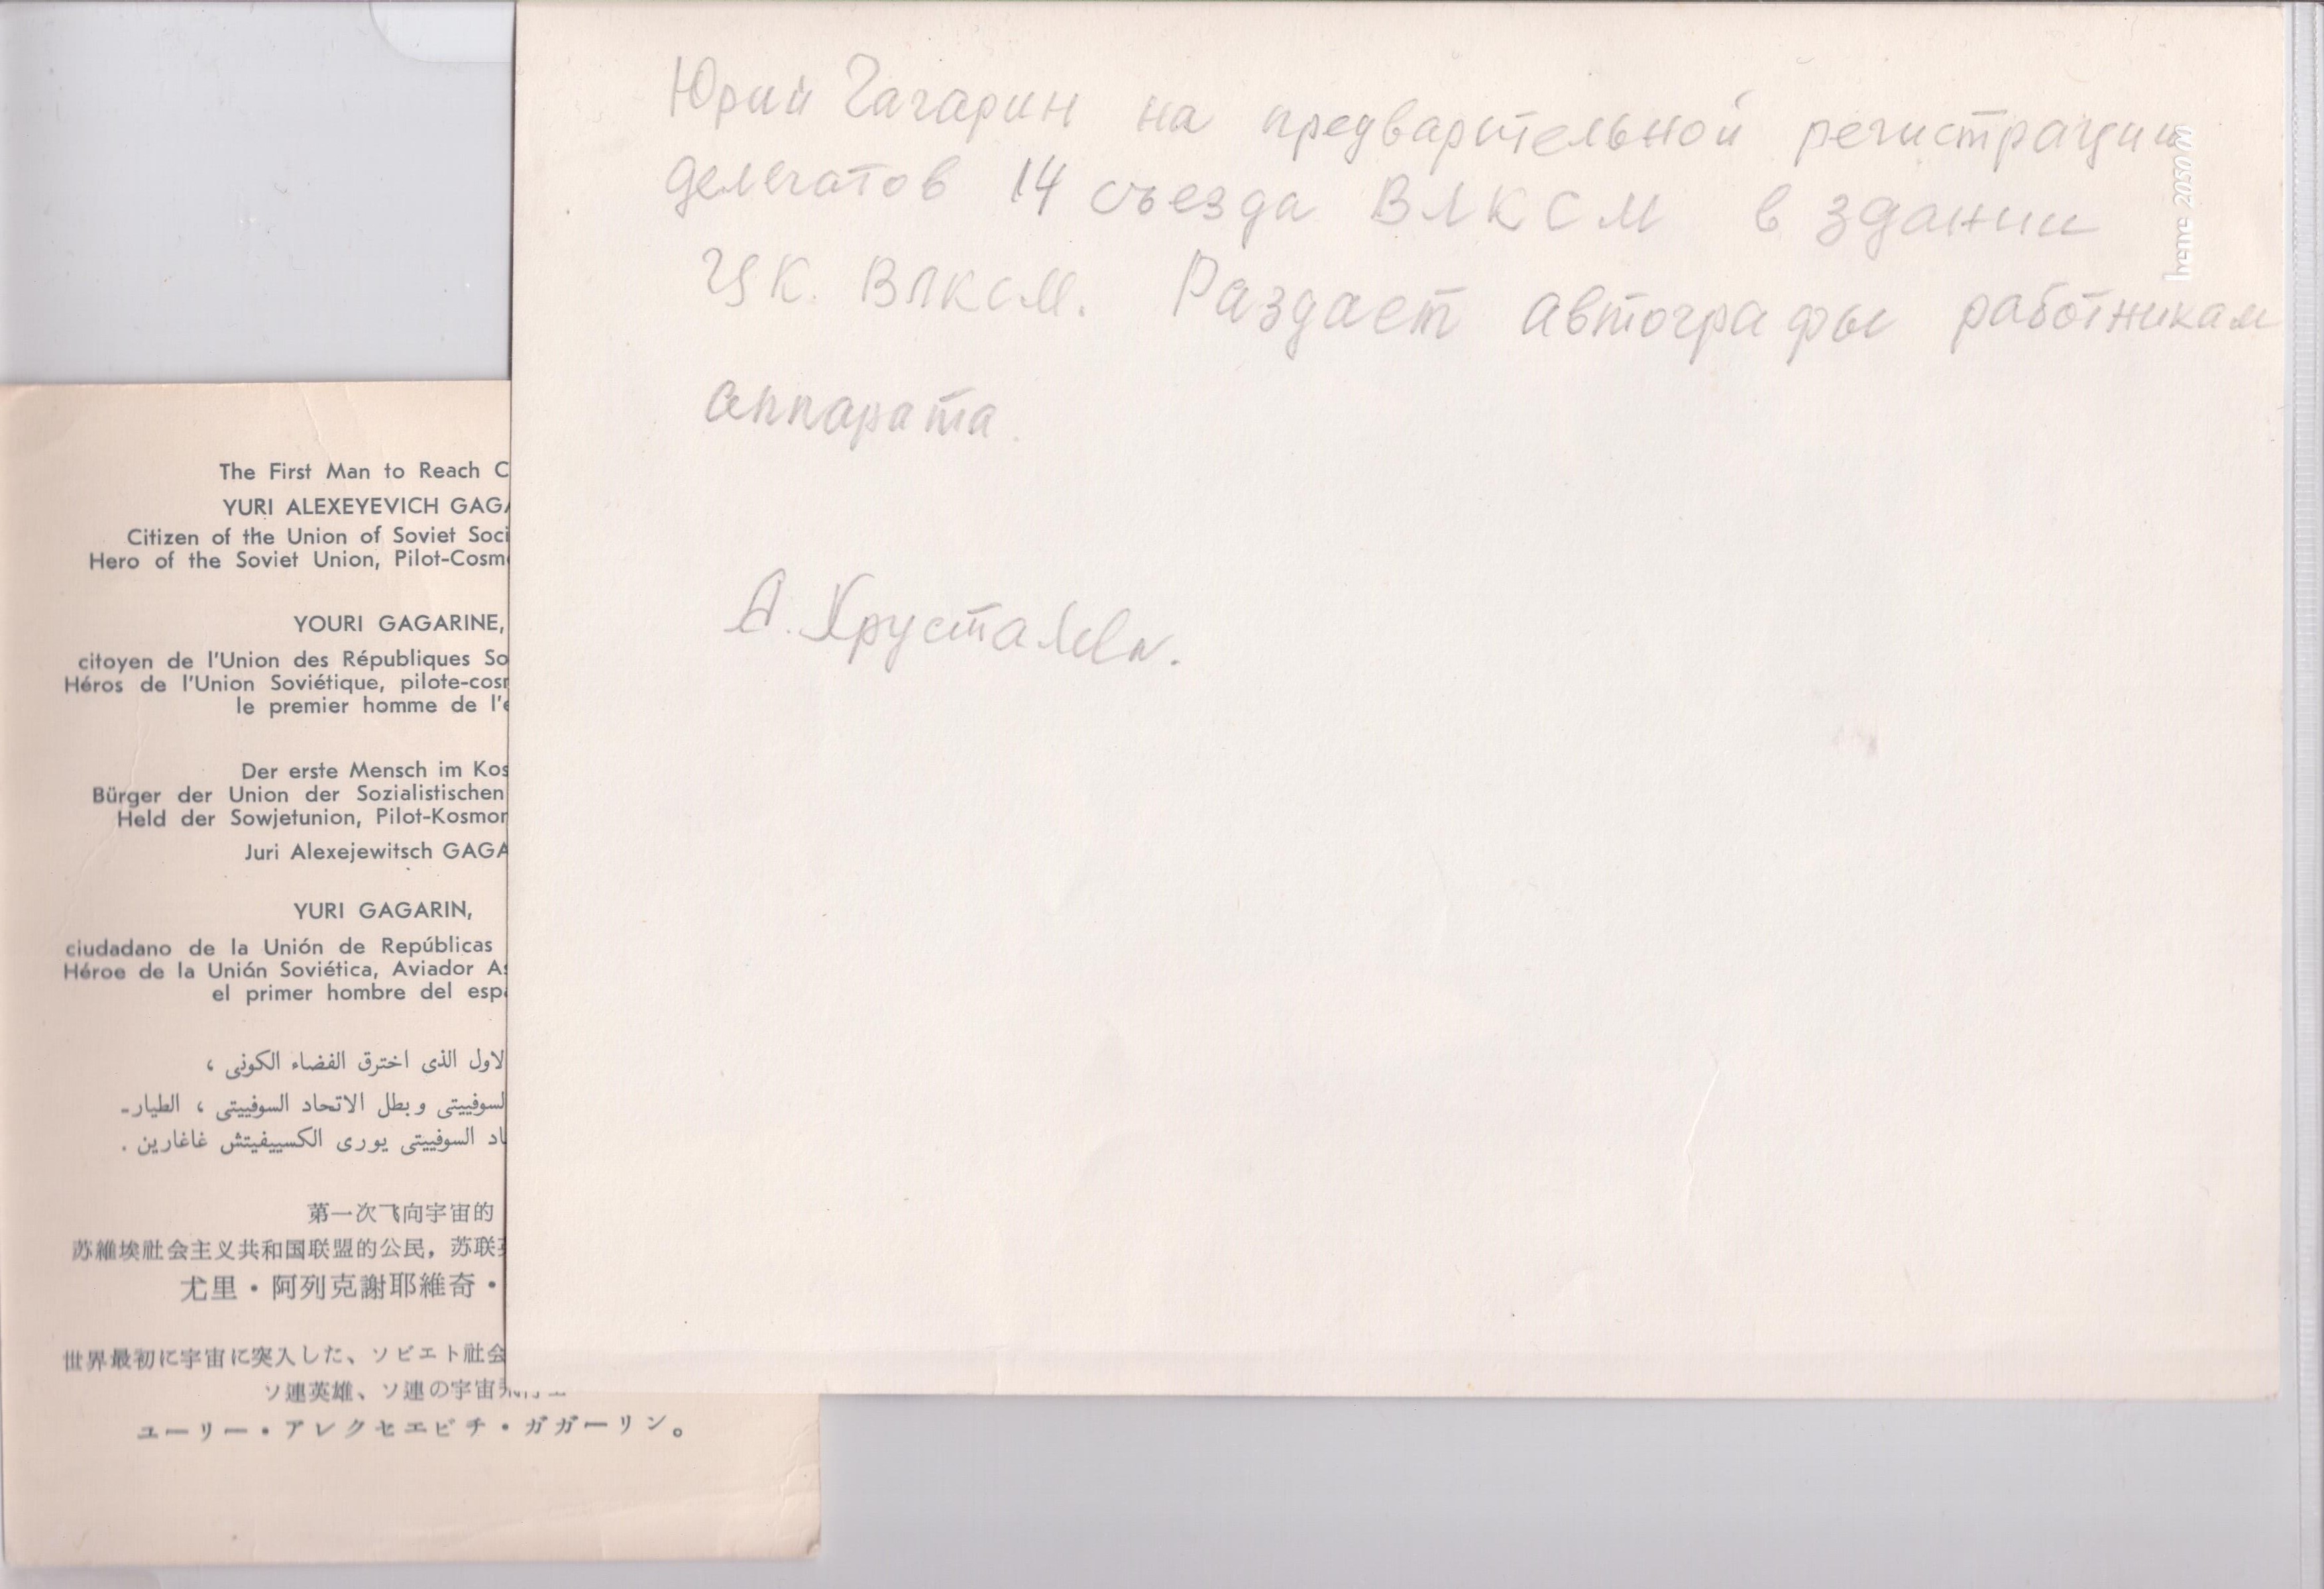 Юрий Гагарин на предварительной регистрации
делегатов 14 съезда ВЛКСМ в здании
ЦК. ВЛКСМ. Раздает автографы работникам
аппарата.
А.
herma 2050 00
The First Man to Reach C
YURI ALEXEYEVICH GAGA
Citizen of the Union of Soviet Soci
Hero of the Soviet Union, Pilot-Cosmo
YOURI GAGARINE,
citoyen de l'Union des Républiques So
Héros de l'Union Soviétique, pilote-cosm
le premier homme de l'e
Der erste Mensch im Kos
Bürger der Union der Sozialistischen
Held der Sowjetunion, Pilot-Kosmon
Juri Alexejewitsch GAGA
YURI GAGARIN,
ciudadano de la Unión de Repúblicas
Héroe de la Unión Soviética, Aviador As
el primer hombre del espa
لاول الذى اخترق الفضاء الكونى ،
لسوفييتى و بطل الاتحاد السوفييتى ، الطيار-
اد السوفييتى يورى الكسييفيتش غاغارين .
第一次飞向宇宙的
苏維埃社会主义共和国联盟的公民，苏联英
尤里・阿列克謝耶維奇・
世界最初に宇宙に突入した、ソビエト社会
ソ連英雄、ソ連の宇宙飛行士
ユーリー・アレクセエビチ・ガガーリン。